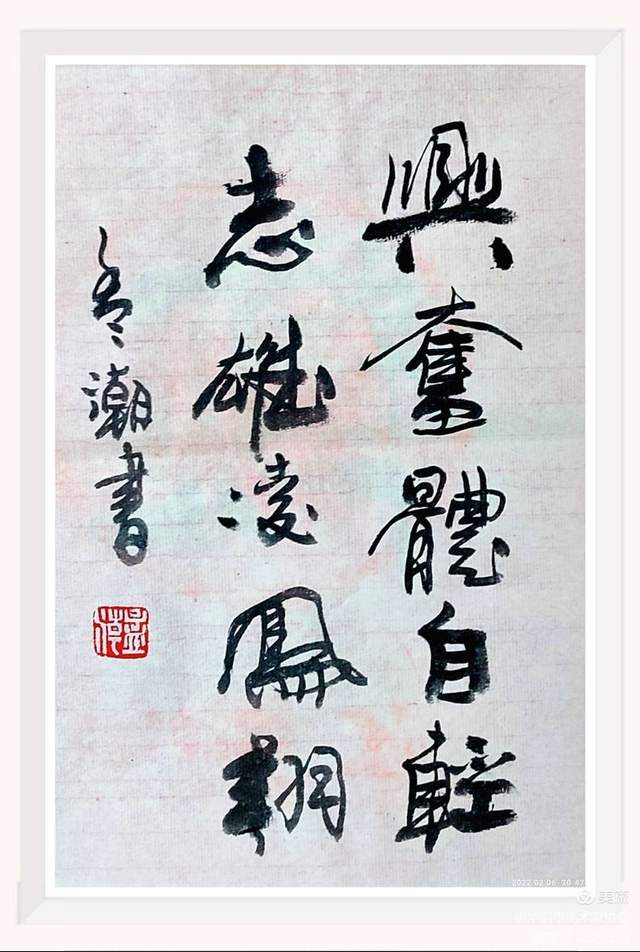 興奮體自輕
志雄凌鳳翔
潮書
2022.02.06 20:47
美篇